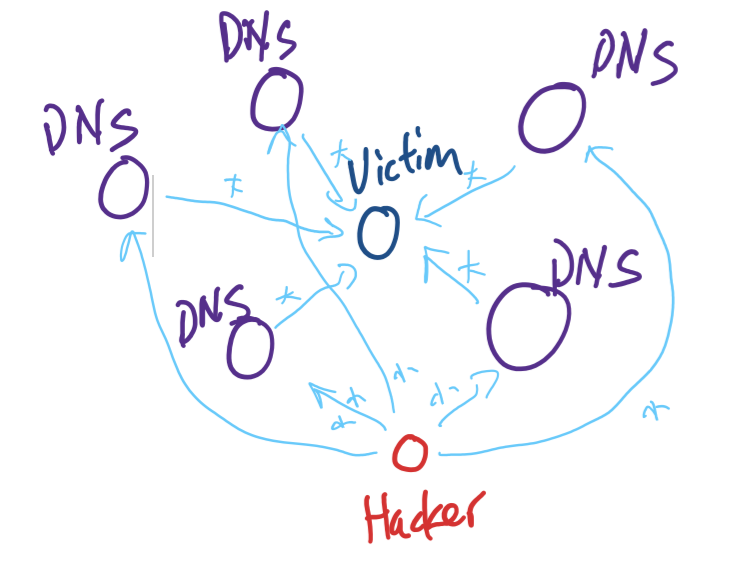 DNS
DNS
DNS
Victim
DNS
DNS
Hacker